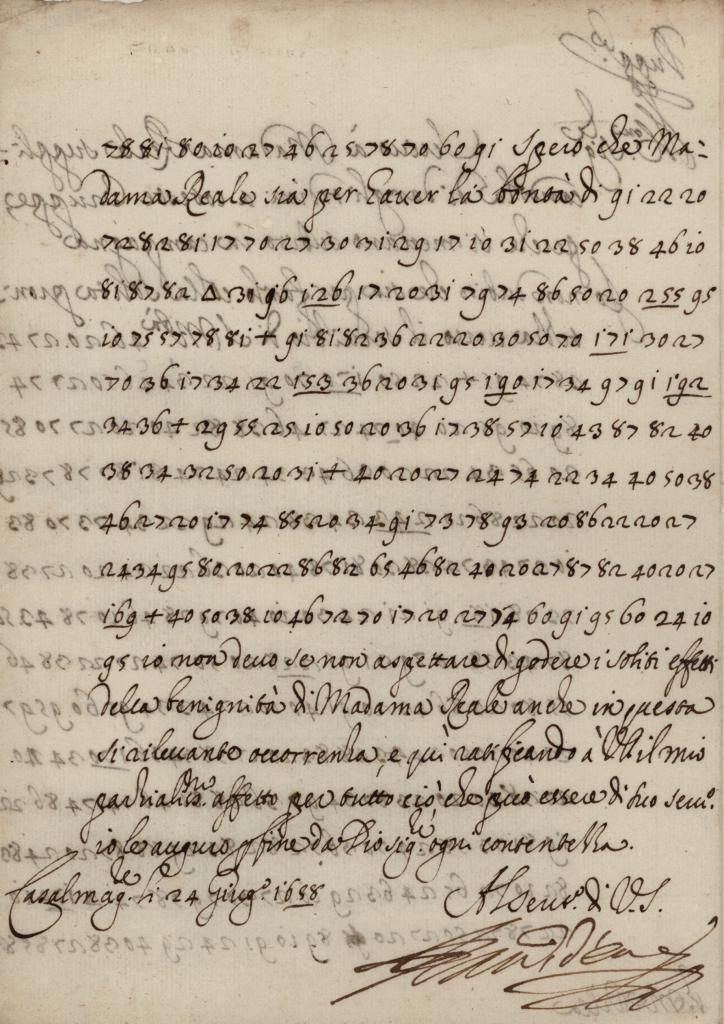 7881 80 10 27 46 25 78 70 60 91 Spero che Ma=
dama Reale sia per haver la bontà di 91 22 20
72 82 81 17 70 27 30 31 29 17 10 31 22 50 38 46 10
81 87 82 Δ 31 96 126 17 20 31 79 74 86 50 20 255 95
10 75 57 78 81 + 91 81 82 36 22 20 30 50 70 171 30 27
70 36 17 34 22 153 36 20 31 95 190 17 34 97 91 192
34 36 + 29 55 25 10 50 20 36 17 38 57 10 43 87 82 40
38 34 32 50 20 31 + 40 20 27 24 74 22 34 40 50 38
46 27 20 17 74 85 20 34 91 73 78 93 20 86 22 20 27
24 34 95 80 20 22 86 82 65 46 82 40 20 27 87 82 40 20 27
169 + 40 50 38 10 46 72 70 17 20 27 74 60 91 95 60 24 10
95 io non devo se non aspettare di godere i soliti effetti
della benignità di Madama Reale anche in questa
sì rilevante occorrenza, e quì ratificando à V.S. il mio
affetto per tutto ciò, che può essere di suo serv.º
io le auguro per fine da Dio sig.re ogni contentezza.
Casalmag.re li 24 Giug.º 1658
Al serv.º di V.S.